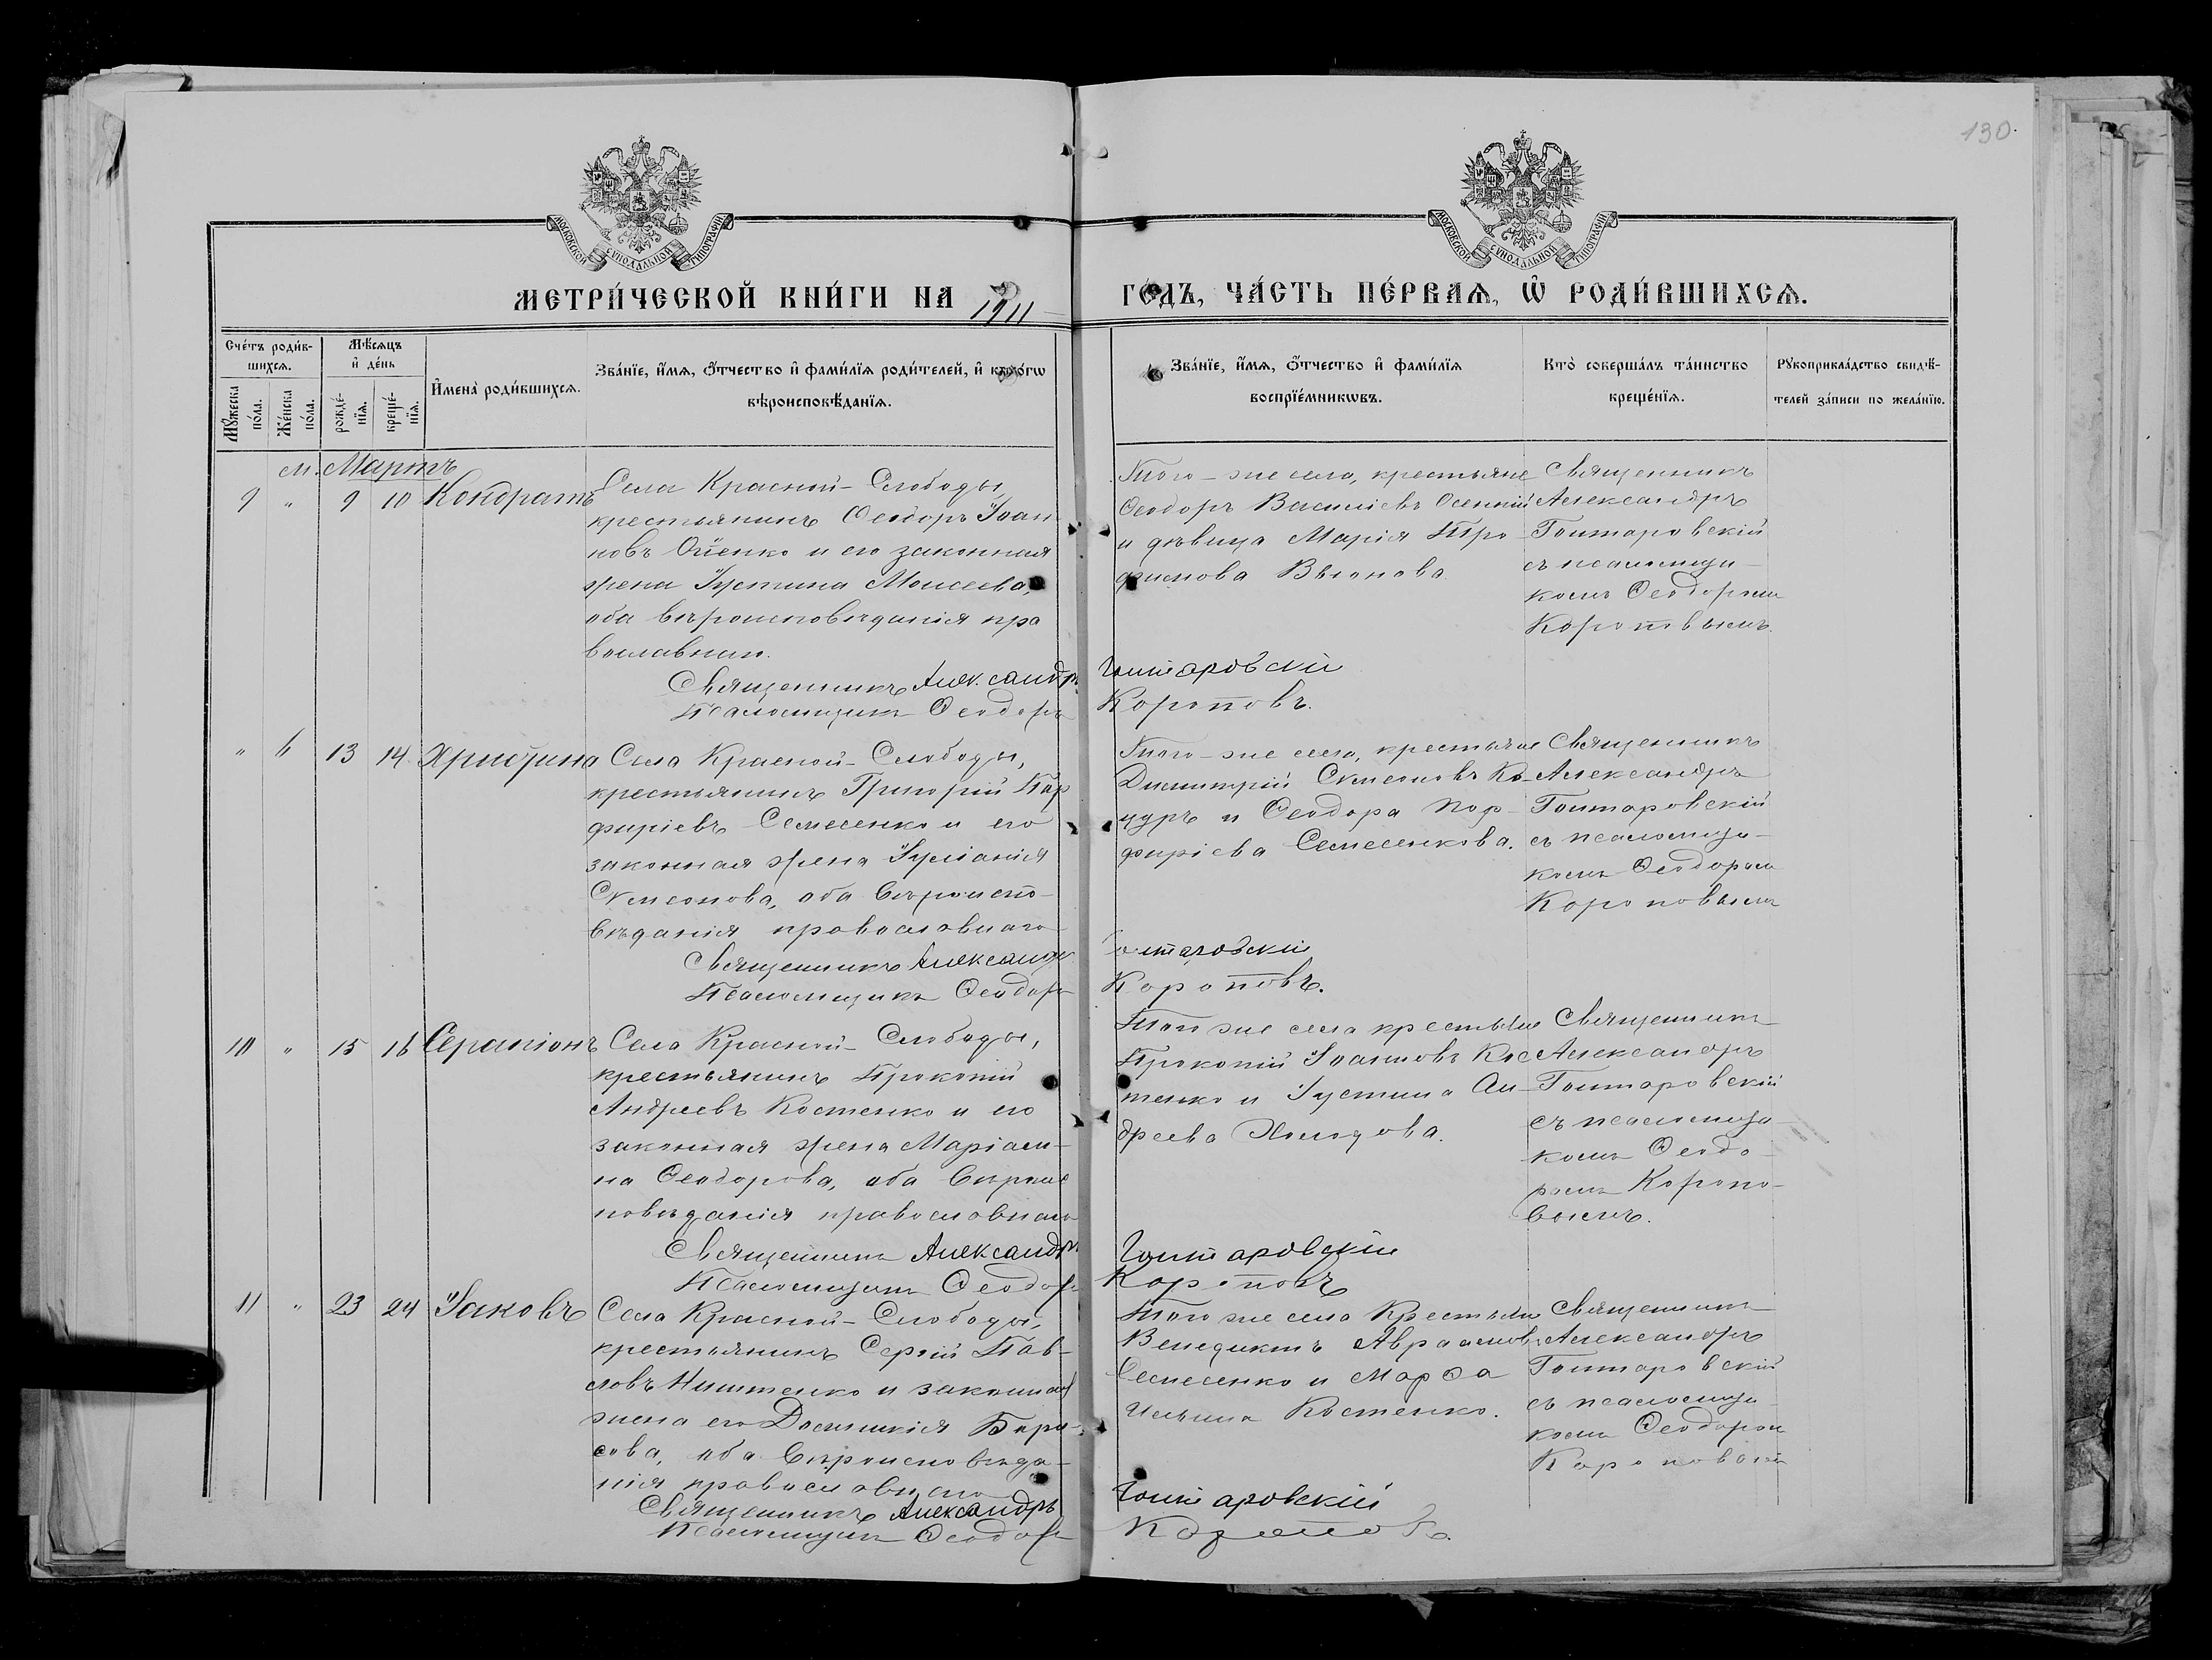 130.
МОСКОВСКОЙ СУНОДАЛЬНОЙ ТИПОГРАФІИ
МОСКОВСКОЙ СУНОДАЛЬНОЙ ТИПОГРАФІИ
МЕТРИ́ЧЕСКОЙ КНИ́ГИ НА 1911
ГОДЪ, ЧА́СТЬ ПЕ́РВАѦ, Ѡ РОДИ́ВШИХСѦ.
Сче́тъ роди́в-
шихсѧ.
Мꙋ́жеска
по́ла.
Же́нска
по́ла.
Мѣ́сѧцъ
и҆ де́нь
рожде́-
нїѧ.
креще́-
нїѧ.
И҆мена̀ роди́вшихсѧ.
Зва́нїе, и҆́мѧ, ѻ҆́тчество и҆ фами́лїѧ роди́телей, и҆ како́гѡ
вѣроисповѣ́данїѧ.
Зва́нїе, и҆́мѧ, ѻ҆́тчество и҆ фами́лїѧ
воспрїе́мникѡвъ.
Кто̀ соверша́лъ та́инство
креще́нїѧ.
Рꙋкоприкла́дство свидѣ́-
телей за́писи по жела́нїю.
м. Мартъ
9 " 9 10 Кондратъ
Села Красной-Слободы,
крестьянинъ Ѳеодоръ Іоан
новъ Оіенко и его законная
жена Іустина Моисеева,
оба вѣроисповѣданія пра
вославнаго.
Священникъ Александръ
Псаломщикъ Ѳеодоръ
Того-же села, крестьяне
Ѳеодоръ Васильевъ Осенній
и дѣвица Марія Тро-
фимова Вьюнова.
Гонтаровскій
Короповъ.
Священникъ
Александръ
Гонтаровскій
съ псаломщи-
комъ Ѳеодоромъ
Короповымъ.
" 6 13 14 Христина
Села Красной-Слободы,
крестьянинъ Григорій Пор
фиріевъ Семесенко и его
законная жена Іуліанія
Симеонова, оба вѣроиспо-
вѣданія православнаго
Священникъ Александръ
Псаломщикъ Ѳеодоръ
Того-же села, крестьяне
Димитрій Симеоновъ Ко-
цуръ и Ѳеодора Пор-
фиріева Семесенкова.
Гонтаровскій
Короповъ.
Священникъ
Александръ
Гонтаровскій
съ псаломщи-
комъ Ѳеодоромъ
Короповымъ
10 " 15 16 Серапіонъ
Села Красной-Слободы,
крестьянинъ Прокопій
Андреевъ Костенко и его
законная жена Маріам-
на Ѳеодорова, оба вѣроис
повѣданія православнаго
Священникъ Александръ
Псаломщикъ Ѳеодоръ
Того же села крестьяне
Прокопій Іоанновъ Кос
тенко и Іустина Ан-
дреева
Гонтаровскій
Короповъ
Священникъ
Александръ
Гонтаровскій
съ псаломщи-
комъ Ѳеодо-
ромъ Коропо-
вымъ.
11 " 23 24 Іаковъ
Села Красной-Слободы,
крестьянинъ Сергій Пав-
ловъ и законная
жена его Домникія Бори-
сова, оба вѣроисповѣда-
нія православнаго
Священникъ Александръ
Псаломщикъ Ѳеодоръ
Того же села Крестьяне
Венедиктъ Авраамовъ
Семесенко и Марѳа
Ильина Костенко.
Гонтаровскій
Короповъ.
Священникъ
Александръ
Гонтаровскій
съ псаломщи-
комъ Ѳеодоромъ
Короповымъ